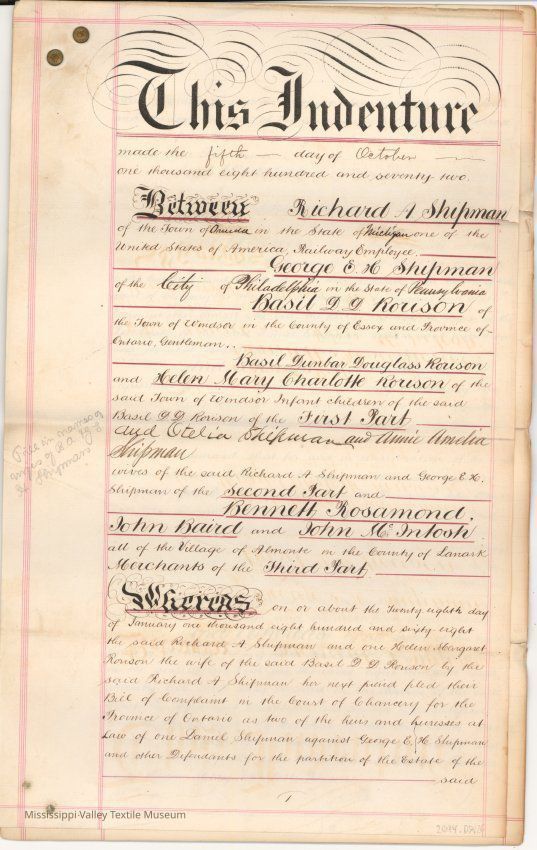 This Indenture
made the fifth — day of October —
one thousand eight hundred and seventy two.
Between Richard A Shipman
of the Town of in the State of Michigan one of the
United States of America, Railway Employee.
George E. H. Shipman
of the City of Philadelphia in the State of Pennsylvania
Basil D D Rouson of
the Town of Windsor in the County of Essex and Province of
Ontario, Gentleman..
Basil Dunbar Douglass Rouson
and Helen Mary Charlotte Rouson of the
said Town of Windsor Infant children of the said
Basil D D Rouson of the First Part
and Otelia Shipman and Annie Amelia
Shipman
wives of the said Richard A Shipman and George E H.
Shipman of the Second Part and
Bennett Rosamond.
John Baird and John McIntosh
all of the Village of Almonte in the County of Lanark
Merchants of the Third Part
Fill in names of
wives of R A & G
E Shipman
Whereas on or about the Twenty eighth day
of January one thousand eight hundred and sixty eight
the said Richard A Shipman and one Helen Margaret
Rouson the wife of the said Basil D D Rouson by the
said Richard A Shipman her next friend filed their
Bill of Complaint in the Court of Chancery for the
Province of Ontario as two of the heirs and heiresses at
Law of one Daniel Shipman against George E. H Shipman
and other Defendants for the partition of the Estate of the
said
1
Mississippi Valley Textile Museum